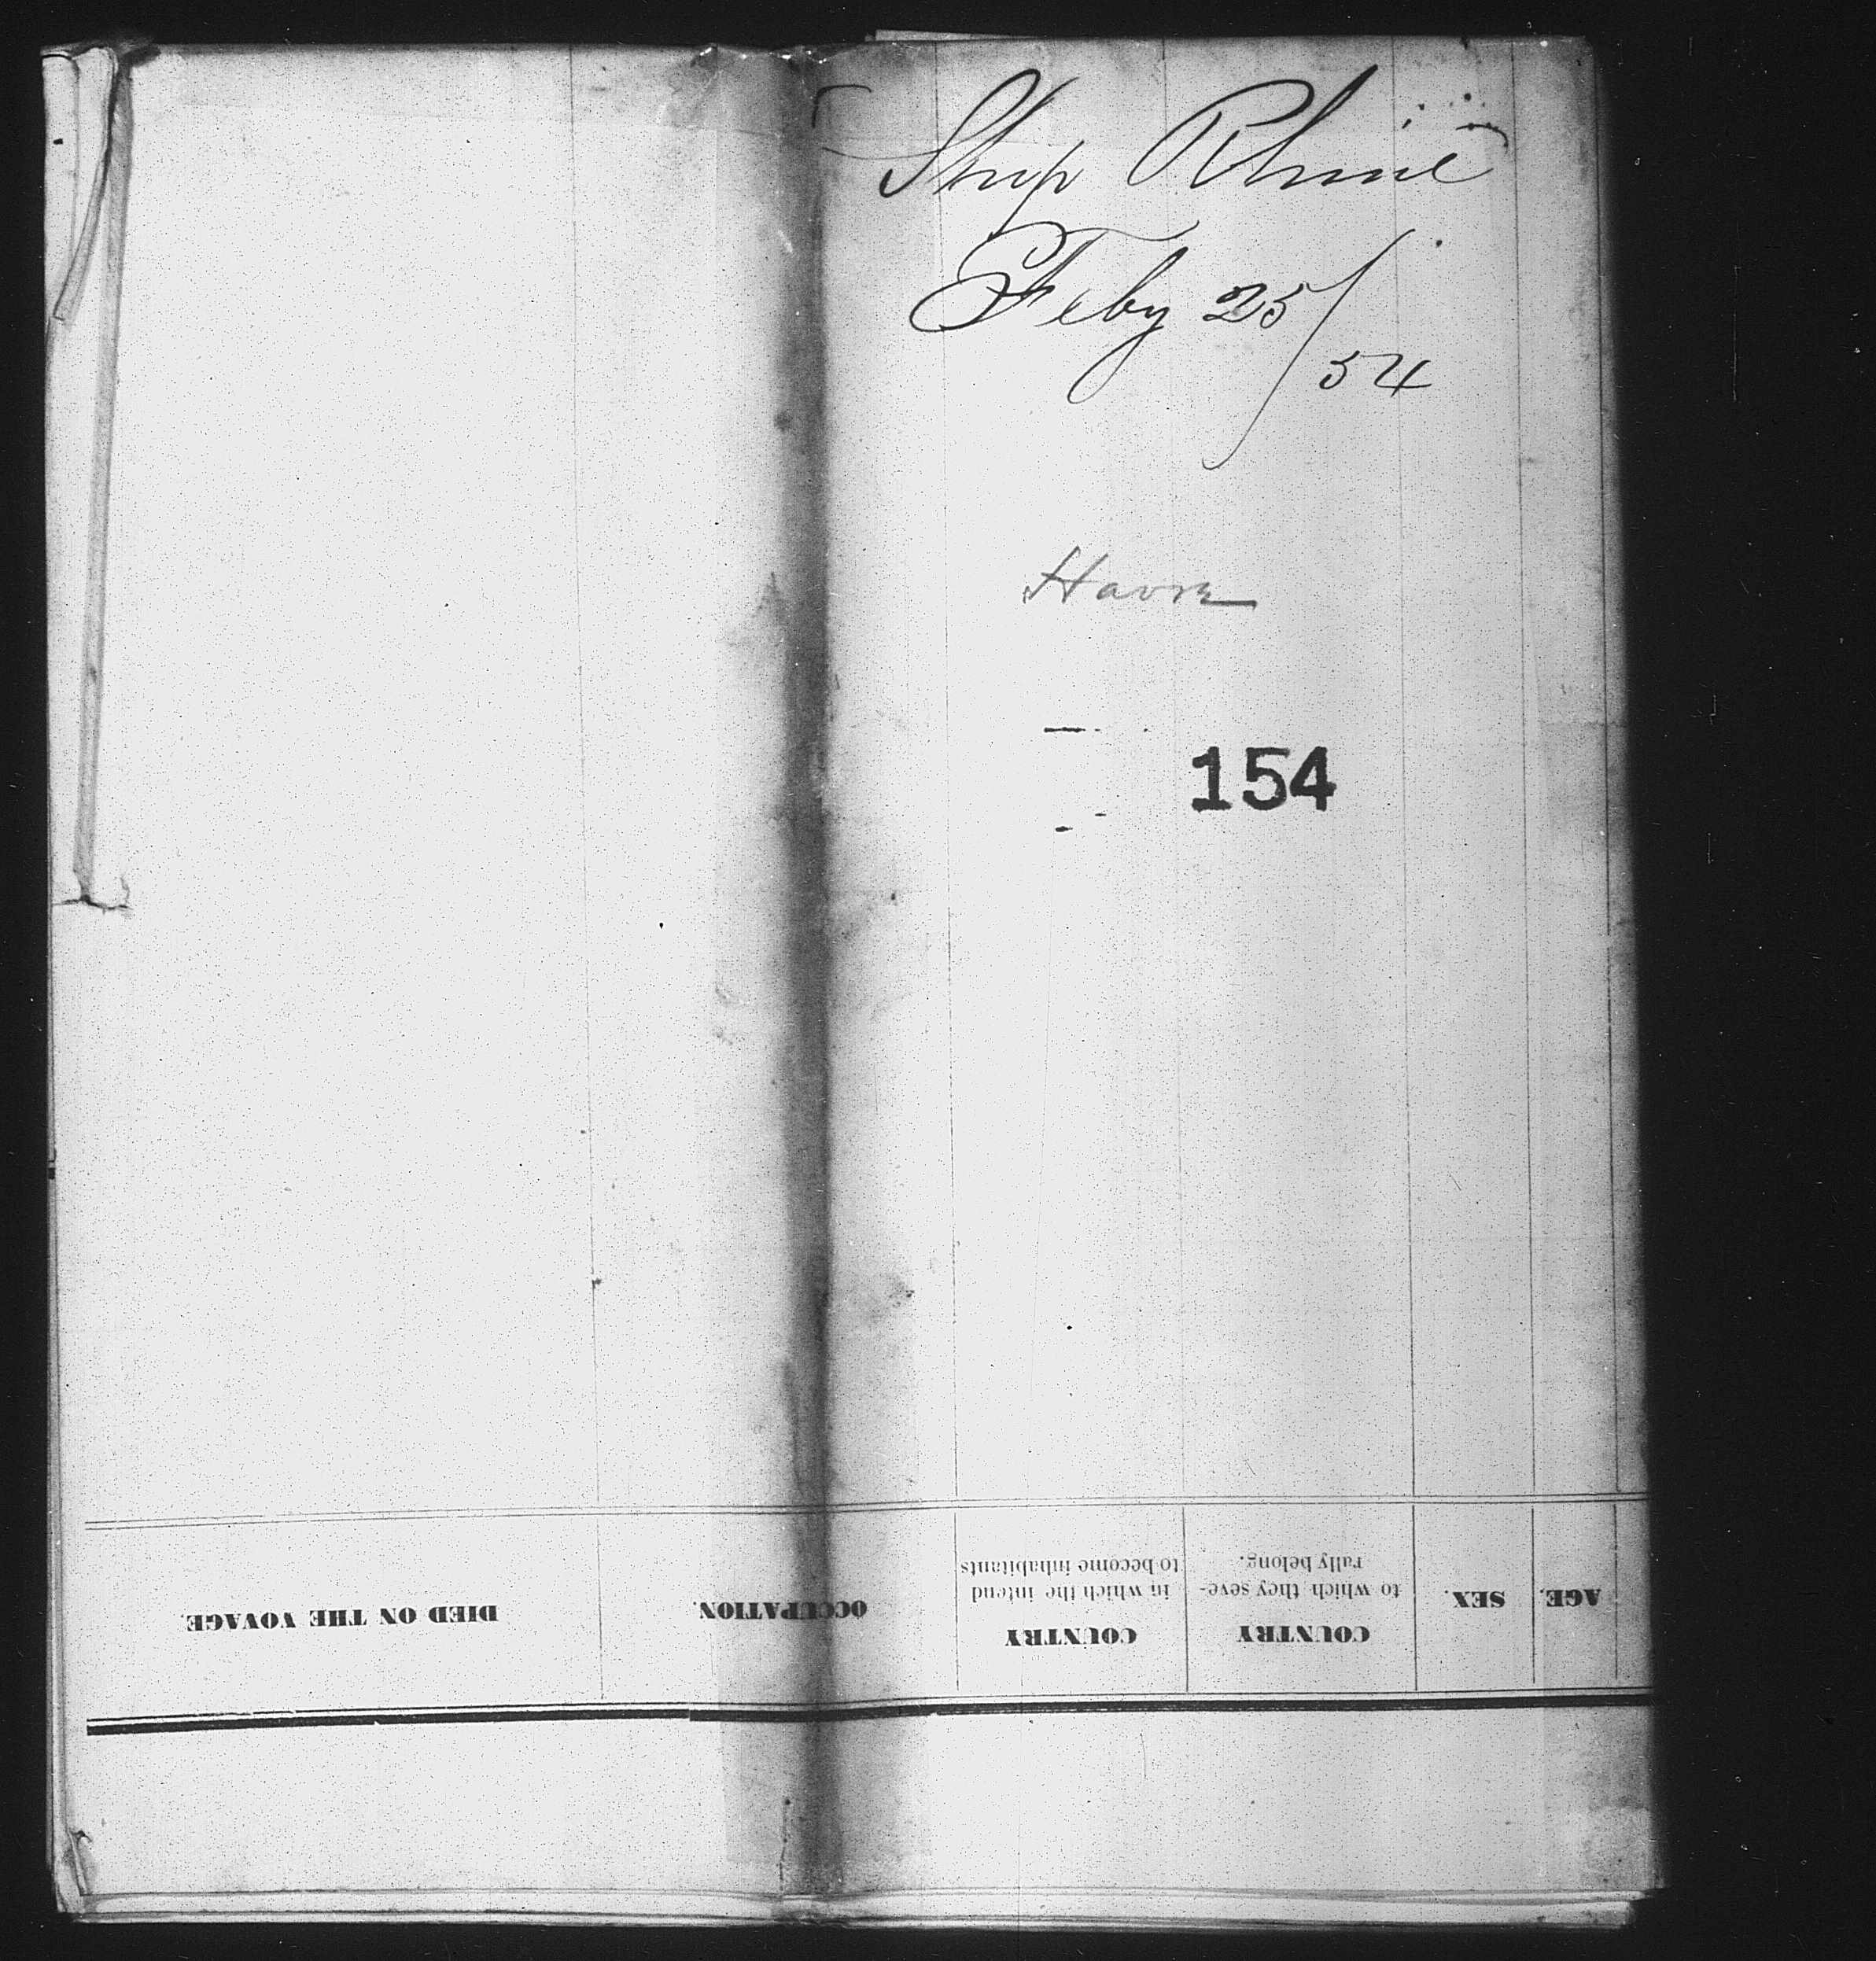 Ship Rhine
Feby 25/54
Havre
154
AGE.
SEX.
COUNTRY
to which they seve-
rally belong.
COUNTRY
in which the intend
to become inhabitants
OCCUPATION.
DIED ON THE VOYAGE.